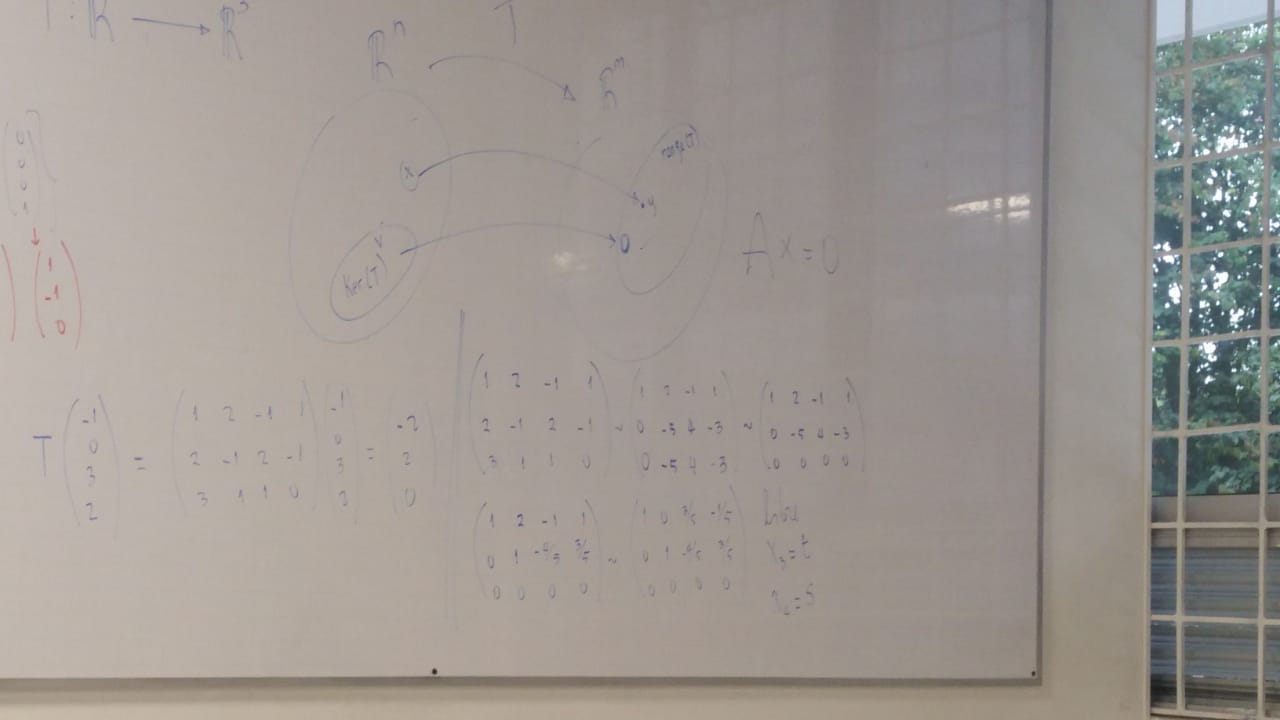 T : ℝ → ℝ³
ℝⁿ T ℝᵐ
range(T)
x
y
0
Ker(T)
Ax=0
0
0
0
1
1
-1
0
T (-1 0 3 2) = (1 2 -1 1 / 2 -1 2 -1 / 3 1 1 0) (-1 0 3 2) = (-2 2 0)
(1 2 -1 1 / 2 -1 2 -1 / 3 1 1 0) ~ (1 2 -1 1 / 0 -5 4 -3 / 0 -5 4 -3) ~ (1 2 -1 1 / 0 -5 4 -3 / 0 0 0 0)
(1 2 -1 1 / 0 1 -4/5 3/5 / 0 0 0 0) ~ (1 0 3/5 -1/5 / 0 1 -4/5 3/5 / 0 0 0 0)
x₃=t
x₄=s